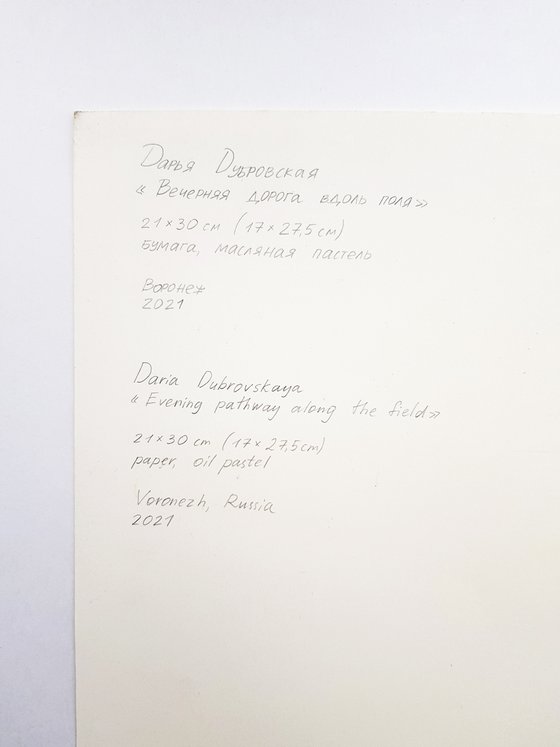 Дарья Дубровская
« Вечерняя дорога вдоль поля»
21×30 см (17×27,5 см)
бумага, масляная пастель
Воронеж
2021
Daria Dubrovskaya
« Evening pathway along the field»
21×30 cm (17×27,5 cm)
paper, oil pastel
Voronezh, Russia
2021